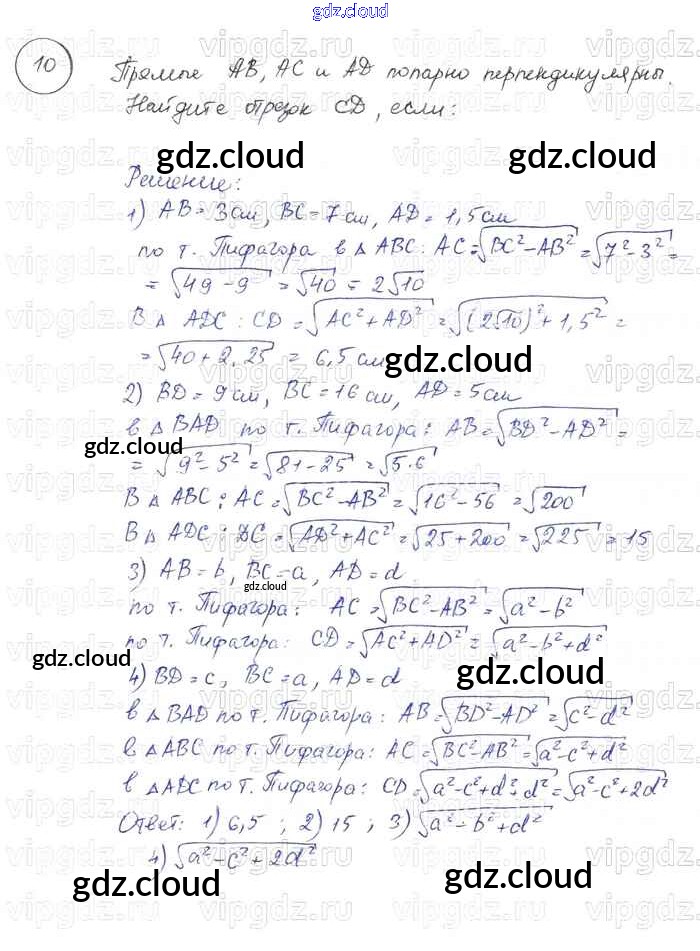 gdz.cloud
10 Прямые AB, AC и AD попарно перпендикулярны.
Найдите отрезок CD, если:
gdz.cloud gdz.cloud
Решение:
1) AB = 3см, BC = 7 см, AD = 1,5 см
по т. Пифагора в △ ABC: AC = √BC² - AB² = √7² - 3² =
= √49 - 9 = √40 = 2√10
В △ ADC : CD = √AC² + AD² = √(2√10)² + 1,5² =
= √40 + 2,25 = 6,5 см
gdz.cloud
2) BD = 9 см, BC = 16 см, AD = 5 см
в △ BAD по т. Пифагора: AB = √BD² - AD² =
gdz.cloud
= √9² - 5² = √81 - 25 = √56
В △ ABC : AC = √BC² - AB² = √16² - 56 = √200
В △ ADC : DC = √AD² + AC² = √25 + 200 = √225 = 15
3) AB = b, BC = a, AD = d
gdz.cloud
по т. Пифагора: AC = √BC² - AB² = √a² - b²
по т. Пифагора: CD = √AC² + AD² = √a² - b² + d²
gdz.cloud gdz.cloud
4) BD = c, BC = a, AD = d
в △ BAD по т. Пифагора: AB = √BD² - AD² = √c² - d²
в △ ABC по т. Пифагора: AC = √BC² - AB² = √a² - c² + d²
в △ ADC по т. Пифагора: CD = √a² - c² + d² + d² = √a² - c² + 2d²
Ответ: 1) 6,5 ; 2) 15 ; 3) √a² - b² + d²
4) √a² - c² + 2d²
gdz.cloud gdz.cloud